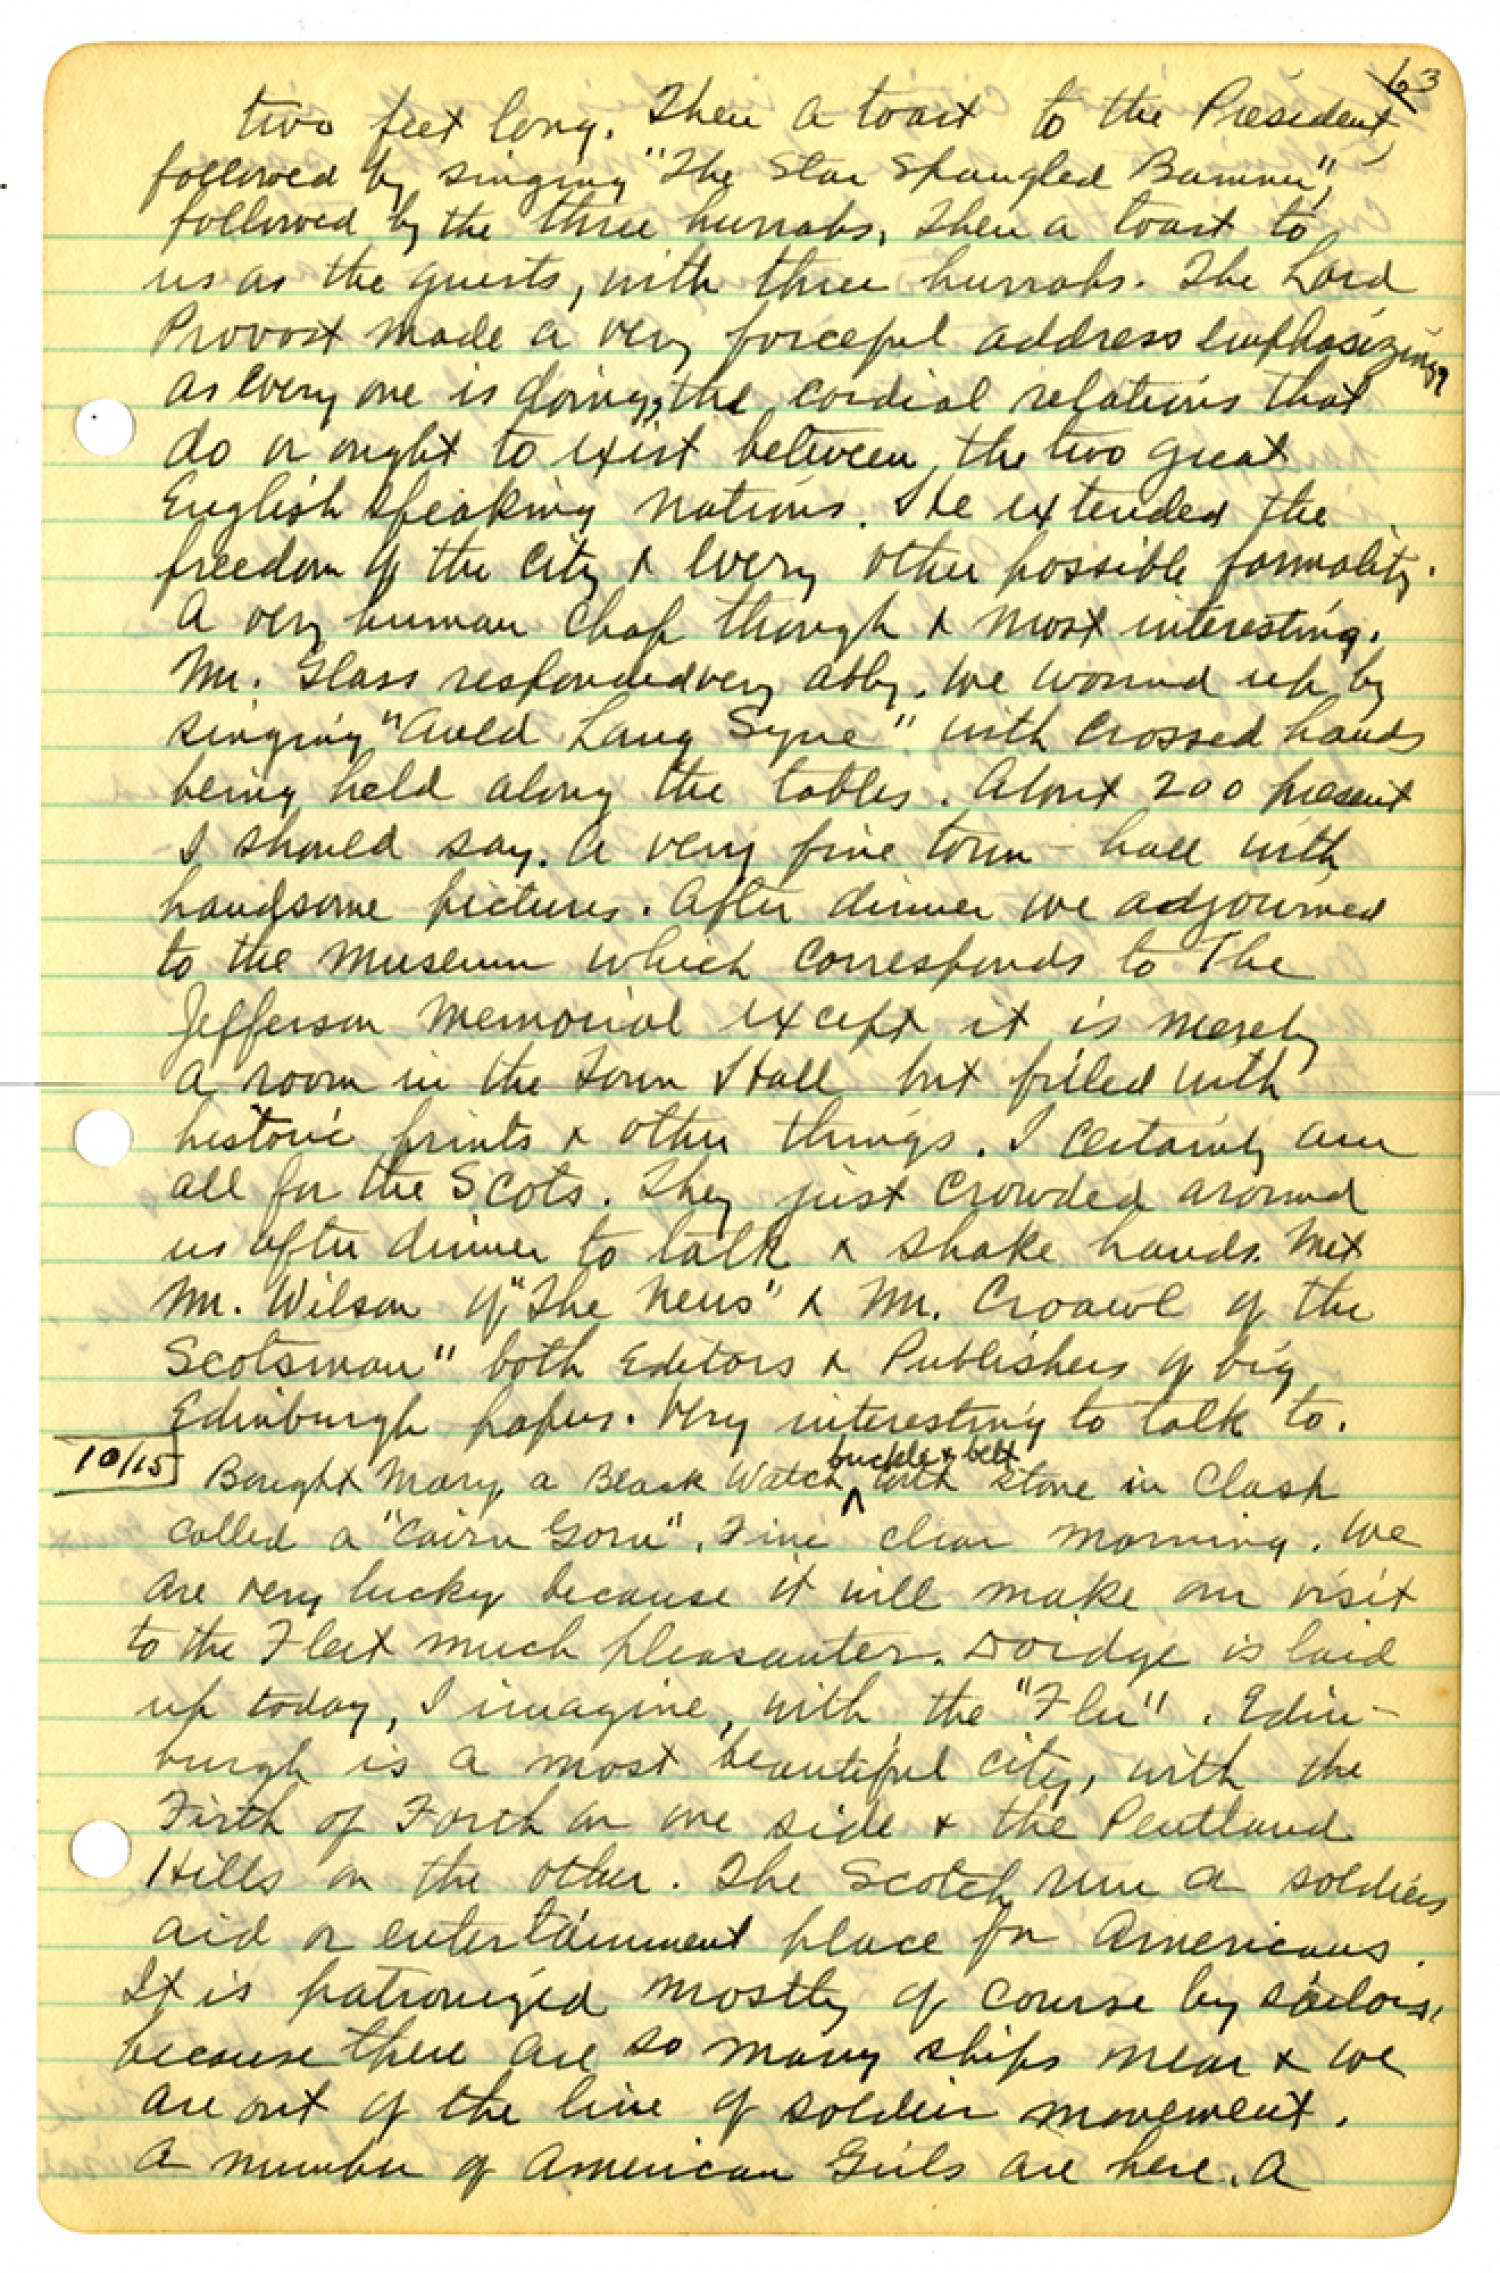 63
two feet long. Then a toast to the President,
followed by singing "The Star Spangled Banner",
followed by the three hurrahs. Then a toast to
us as the guests, with three hurrahs. The Lord
Provost made a very forceful address emphasizing,
as every one is doing, the cordial relations that
do or ought to exist between the two great
English speaking nations. He extended the
freedom of the city & every other possible formality.
A very human chap though & most interesting.
Mr. Glass responded very ably. We wound up by
singing "Auld Lang Syne" with crossed hands
being held along the tables. About 200 present
I should say. A very fine town-hall with
handsome pictures. After dinner we adjourned
to the museum which corresponds to The
Jefferson Memorial except it is merely
a room in the Town Hall but filled with
historic prints & other things. I certainly am
all for the Scots. They just crowded around
us after dinner to talk & shake hands. Met
Mr. Wilson of "The News" & Mr. Croawl of the
Scotsman" both Editors & Publishers of big
Edinburgh papers. Very interesting to talk to.
10/15] Bought Mary a Black Watch buckle & belt with stone in clasp
called a "Cairn Gorn". Fine clear morning. We
are very lucky because it will make our visit
to the Fleet much pleasanter. Doidge is laid
up today, I imagine, with the "Flu". Edin-
burgh is a most beautiful city, with the
Firth of Forth on one side & the Pentland
Hills on the other. The Scotch run a soldiers
aid or entertainment place for Americans.
It is patronized mostly of course by sailors,
because there are so many ships near & we
are out of the line of soldier movement.
A number of American Girls are here. A